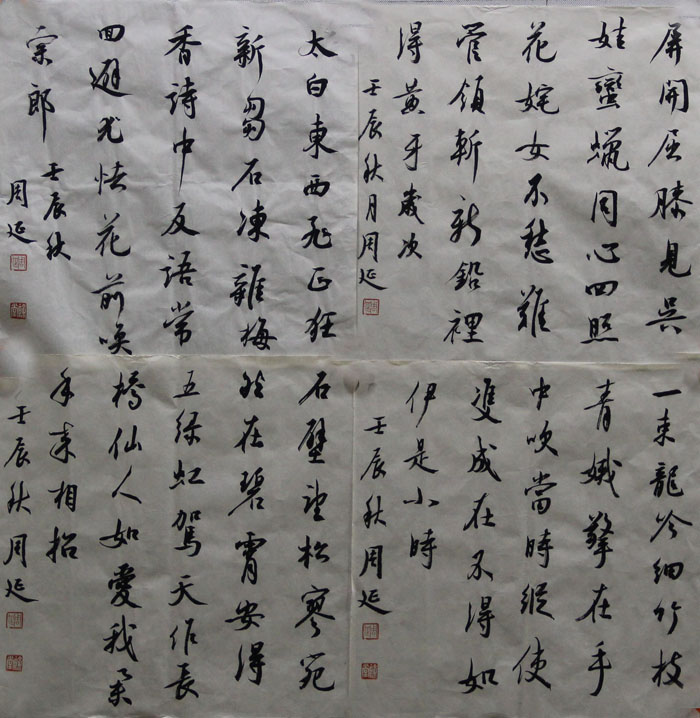 屏開屈膝見吳
娃蠻蠟同心四照
花姹女不愁難
管領斬新鉛裡
得黃牙歲次
壬辰秋月周延
太白東西飛正狂
新芻石凍雜梅
香詩中反語常
回避尤怯花前喚
索郎
壬辰秋
周延
一束龍吟細竹枝
青娥擎在手
中吹當時縱使
雙成在不得如
伊是小時
壬辰秋周延
石壁望松寥宛
然在碧霄安得
五綵虹駕天作長
橋仙人如愛我舉
手來相招
壬辰秋周延